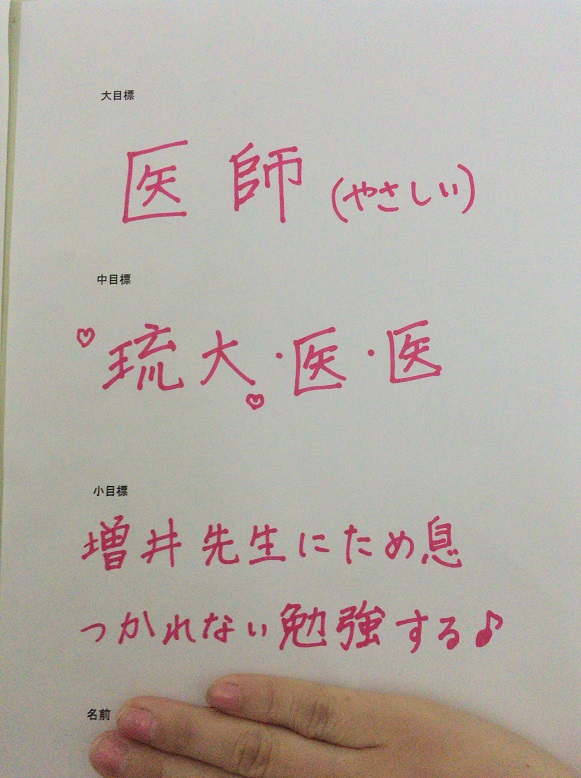 大目標
医師(やさしい)
中目標
♡琉大・医・医
♡
小目標
増井先生にため息
つかれない勉強する♪
名前